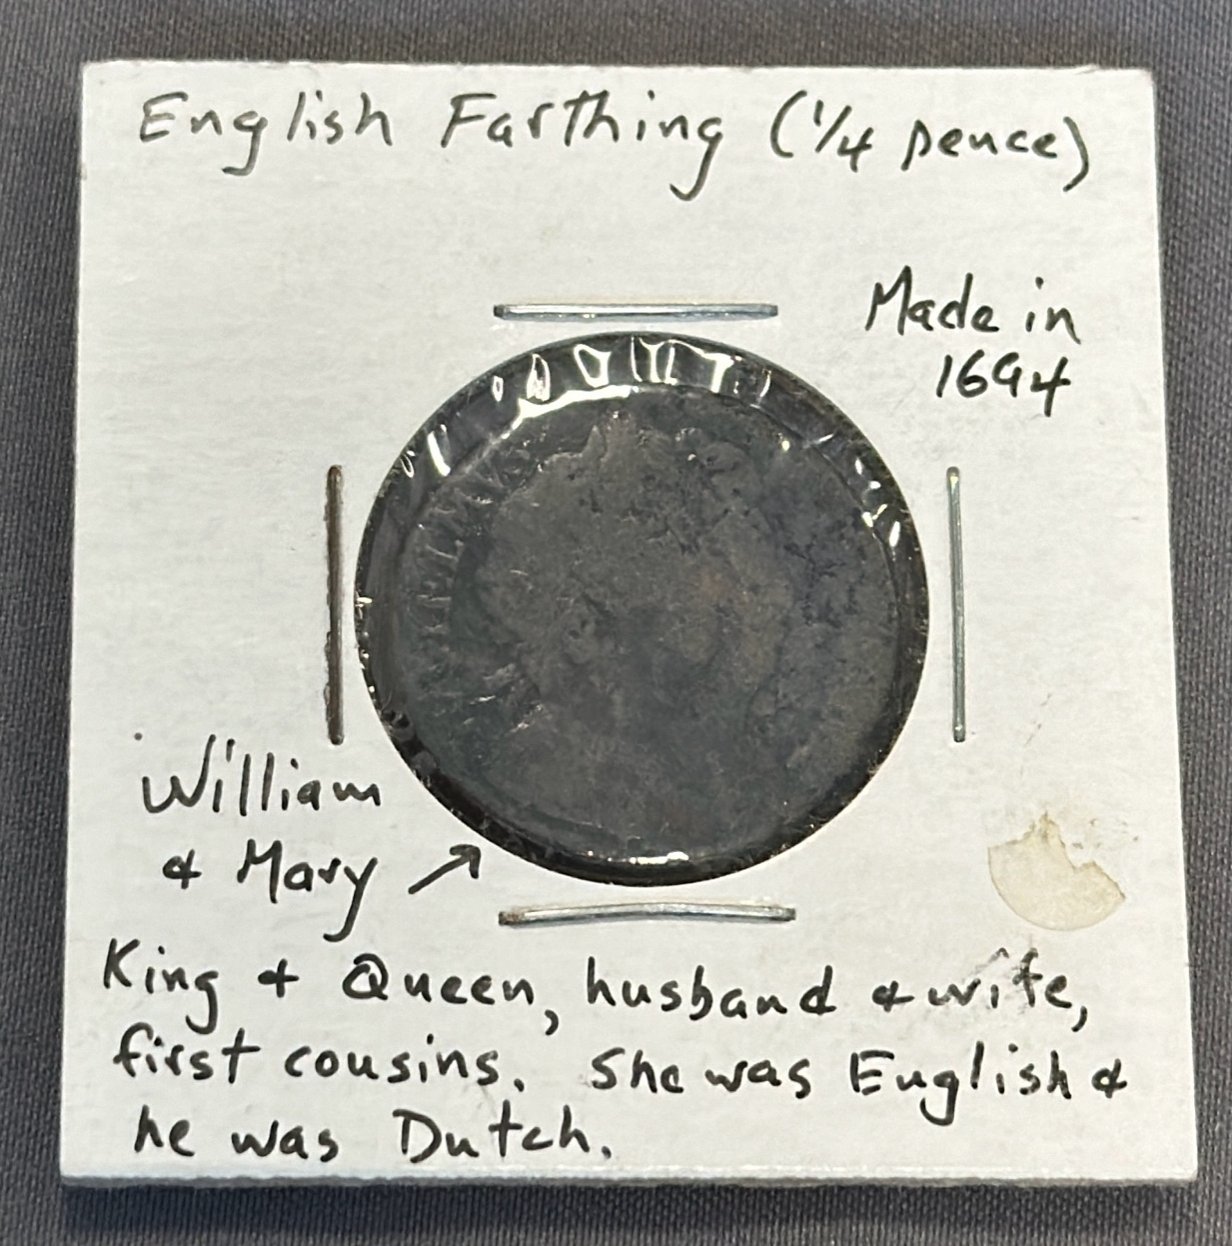 English Farthing (1/4 pence)
Made in
1694
William
& Mary
King & Queen, husband & wife,
first cousins. She was English &
he was Dutch.